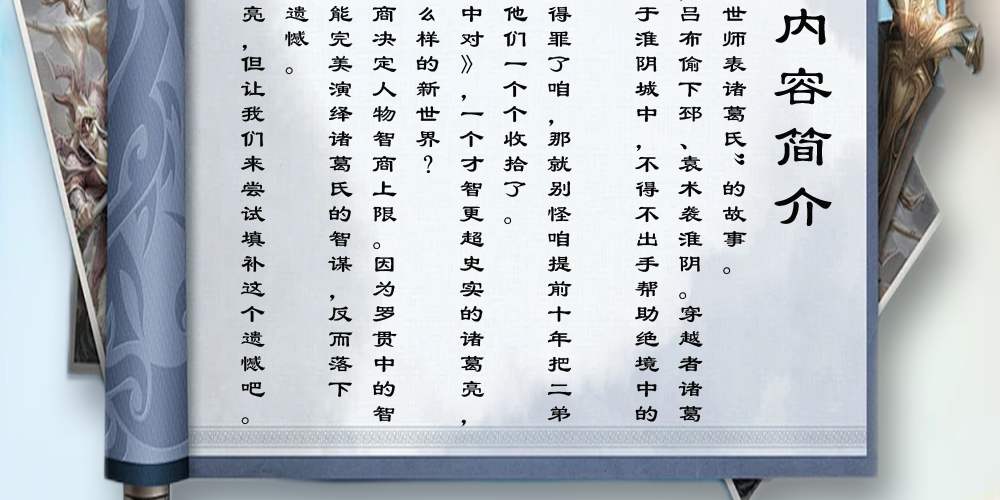 内容简介
世师表诸葛氏”的故事。
吕布偷下邳、袁术袭淮阴。穿越者诸葛
于淮阴城中，不得不出手帮助绝境中的
得罪了咱，那就别怪咱提前十年把二弟
他们一个个收拾了。
中对》，一个才智更超史实的诸葛亮，
么样的新世界？
商决定人物智商上限。因为罗贯中的智
能完美演绎诸葛氏的智谋，反而落下
遗憾。
亮，但让我们来尝试填补这个遗憾吧。